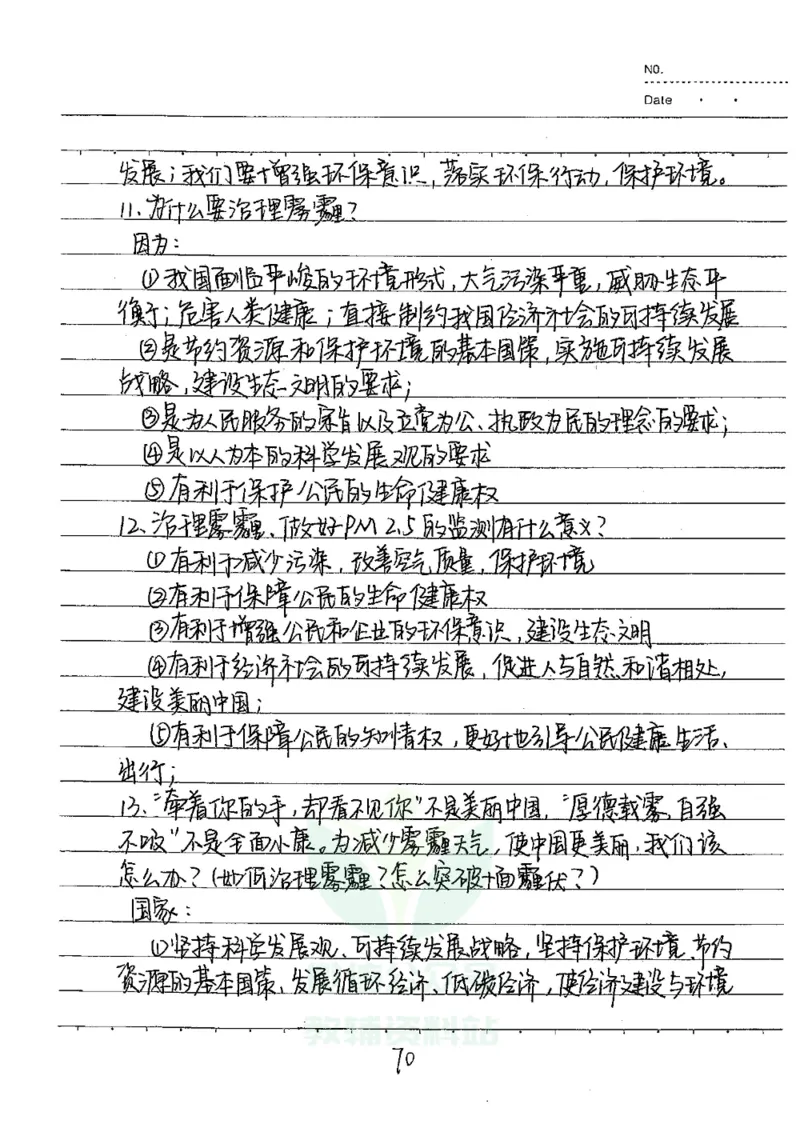 NO.
Date
发展；我们要增强环保意识，落实环保行动，保护环境。
11、为什么要治理雾霾？
因为：
①我国面临严峻的环境形式，大气污染严重，威胁生态平
衡于；危害人类健康；直接制约我国经济社会的可持续发展
②是节约资源和保护环境的基本国策，实施可持续发展
战略，建设生态文明的要求；
③是为人民服务的宗旨以及立党为公、执政为民的理念的要求；
④是以人为本的科学发展观的要求
⑤有利于保护公民的生命健康权
12、治理雾霾、做好PM 2.5的监测有什么意义？
①有利于减少污染，改善空气质量，保护环境
②有利于保障公民的生命健康权
③有利于增强公民和企业的环保意识，建设生态文明
④有利于经济社会的可持续发展，促进人与自然和谐相处，
建设美丽中国；
⑤有利于保障公民的知情权，更好地引导公民健康生活、
出行；
13、“牵着你的手，却看不见你”不是美丽中国，“厚德载雾，自强
不吸”不是全面小康。为减少雾霾天气，使中国更美丽，我们该
怎么办？（如何治理雾霾？怎么突破十面霾伏？）
国家：
①坚持科学发展观、可持续发展战略，坚持保护环境、节约
资源的基本国策、发展循环经济、低碳经济，使经济建设与环境
教辅资料站
70